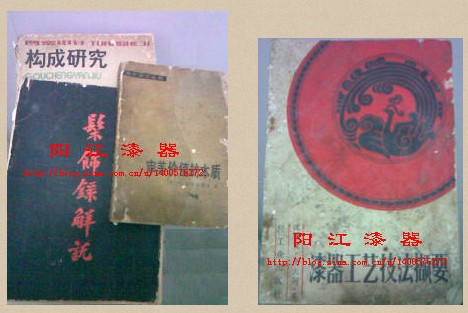 构成研究
GOUCHENGYANJIU
髹飾録解説
审美价值的本质
阳江漆器
http://blog.sina.com.cn/u/1400578272
阳江漆器
http://blog.sina.com.cn/u/1400578272
漆器工艺技法撷要